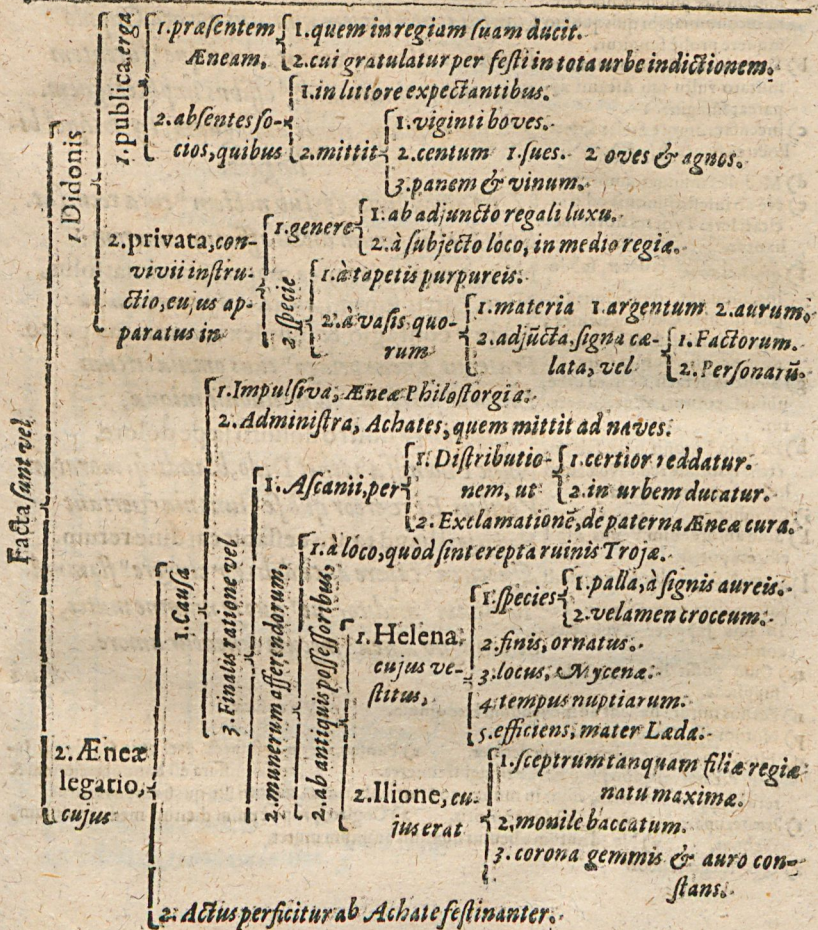 Facta sunt vel
1. Didonis
1. publica. erga
1. præsentem Æneam,
1. quem in regiam suam ducit.
2. cui gratulatur per festi in tota urbe indictionem.
2. absentes so-
cios, quibus
1. in littore expectantibus.
2. mittit
1. viginti boves.
2. centum 1. sues. 2 oves & agnos.
3. panem & vinum.
2. privata, con-
vivii instru-
ctio, eujus ap-
paratus in
1. genere
1. ab adjuncto regali luxu.
2. à subjecto loco, in medio regiæ.
2. specie
1. à tapetis purpureis.
2. à vasis quo-
rum
1. materia 1. argentum 2. aurum.
2. adjūcta. signa cæ-
lata, vel
1. Factorum.
2. Personarū.
2. Æneæ
legatio,
cujus
1. Causa
1. Impulsiva, Æneæ Philostorgia.
2. Administra, Achates, quem mittit ad naves.
3. Finalis ratione vel
1. Ascanii, per
1. Distributio-
nem, ut
1. certior reddatur.
2. in urbem ducatur.
2. Exclamationē, de paterna Æneæ cura.
2. munerum afferendorum,
1. à loco, quòd sint erepta ruinis Trojæ.
2. ab antiquis possessoribus,
1. Helena,
cujus ve-
stitus,
1. species
1. palla, à signis aureis.
2. velamen croceum.
2. finis, ornatus.
3. locus, Mycenæ.
4. tempus nuptiarum.
5. efficiens, mater Læda.
2. Ilione, cu-
jus erat
1. sceptrum tanquam filiæ regiæ
natu maximæ.
2. monile baccatum.
3. corona gemmis & auro con-
stans.
2. Actus perficitur ab Achate festinanter.